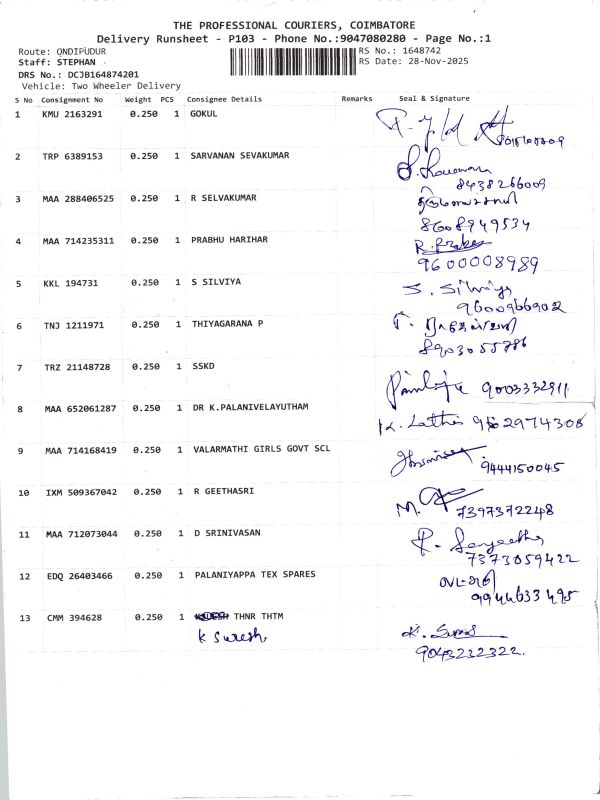 THE PROFESSIONAL COURIERS, COIMBATORE
Delivery Runsheet - P103 - Phone No.:9047080280 - Page No.:1
Route: ONDIPUDUR
RS No.: 1648742
Staff: STEPHAN
RS Date: 28-Nov-2025
DRS No.: DCJB164874201
Vehicle: Two Wheeler Delivery
S No Consignment No Weight PCS Consignee Details Remarks Seal & Signature
1 KMU 2163291 0.250 1 GOKUL
2 TRP 6389153 0.250 1 SARVANAN SEVAKUMAR
8438266009
3 MAA 288406525 0.250 1 R SELVAKUMAR
8608949534
4 MAA 714235311 0.250 1 PRABHU HARIHAR
9600008989
5 KKL 194731 0.250 1 S SILVIYA S. Silviya
9600966902
6 TNJ 1211971 0.250 1 THIYAGARANA P
8903055786
7 TRZ 21148728 0.250 1 SSKD
9003332911
8 MAA 652061287 0.250 1 DR K.PALANIVELAYUTHAM
K. Latha
9 MAA 714168419 0.250 1 VALARMATHI GIRLS GOVT SCL
9444150045
10 IXM 509367042 0.250 1 R GEETHASRI
7397372248
11 MAA 712073044 0.250 1 D SRINIVASAN
7373059422
12 EDQ 26403466 0.250 1 PALANIYAPPA TEX SPARES
9944633495
13 CMM 394628 0.250 1 THNR THTM
K Suresh
9043232322